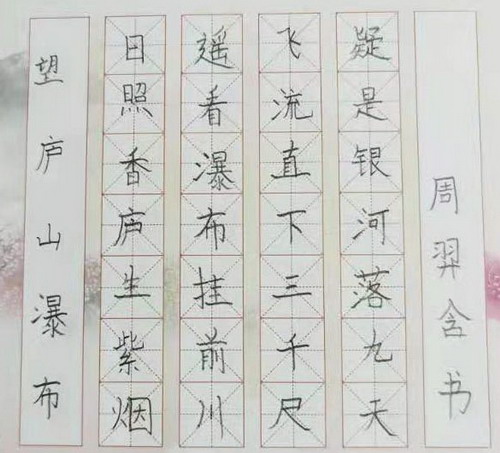 望庐山瀑布
日照香庐生紫烟
遥看瀑布挂前川
飞流直下三千尺
疑是银河落九天
周羿含书